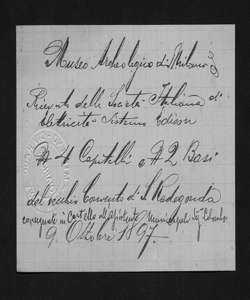 Museo Archeologico di Milano
Ricevute dalla Società Italiana di
Elettricità Sistema Edison
N 4 Capitelli e N 2 Basi
del vecchio Convento di S. Radegonda
consegnate in Castello all'assistente Municipale Sig. Colombo
9. Ottobre 1897.